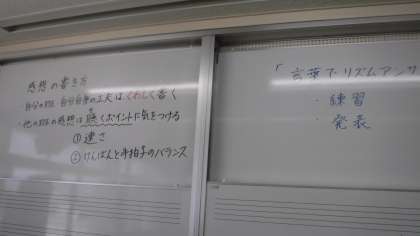 感想の書き方
・自分の班、自分自身の工夫はくわしく書く
・他の班の感想は聴くポイントに気をつける
①速さ
②けんばんと手拍子のバランス
「言葉でリズムアンサ
・練習
・発表